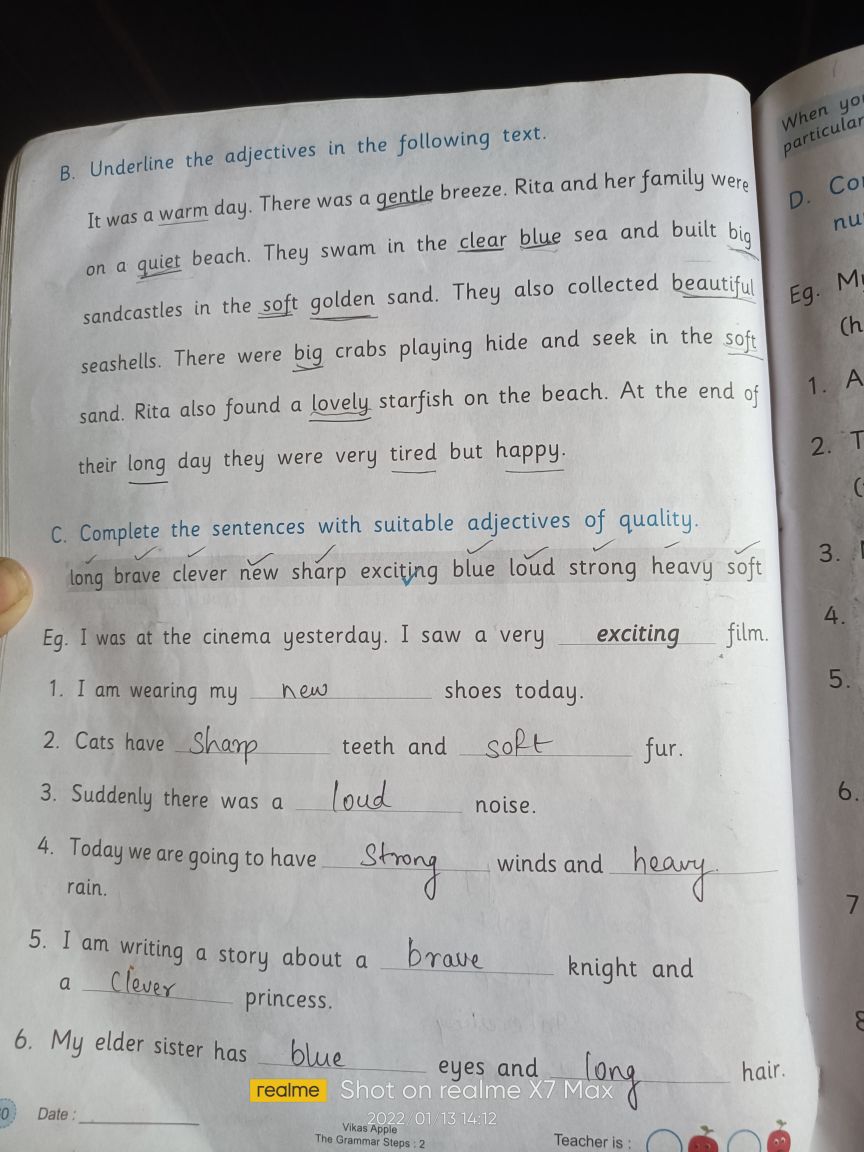 B. Underline the adjectives in the following text.
It was a warm day. There was a gentle breeze. Rita and her family were
on a quiet beach. They swam in the clear blue sea and built big
sandcastles in the soft golden sand. They also collected beautiful
seashells. There were big crabs playing hide and seek in the soft
sand. Rita also found a lovely starfish on the beach. At the end of
their long day they were very tired but happy.
C. Complete the sentences with suitable adjectives of quality.
long brave clever new sharp exciting blue loud strong heavy soft
Eg. I was at the cinema yesterday. I saw a very exciting film.
1. I am wearing my new shoes today.
2. Cats have Sharp teeth and soft fur.
3. Suddenly there was a loud noise.
4. Today we are going to have Strong winds and heavy.
rain.
5. I am writing a story about a brave knight and
a Clever princess.
6. My elder sister has blue eyes and long hair.
realme Shot on realme X7 Max
2022/01/13 14:12
0 Date :
Vikas Apple
The Grammar Steps : 2
Teacher is :
When
particular
D.
Eg.
(h
1. A
2. T
3.
4.
5.
6.
7
8